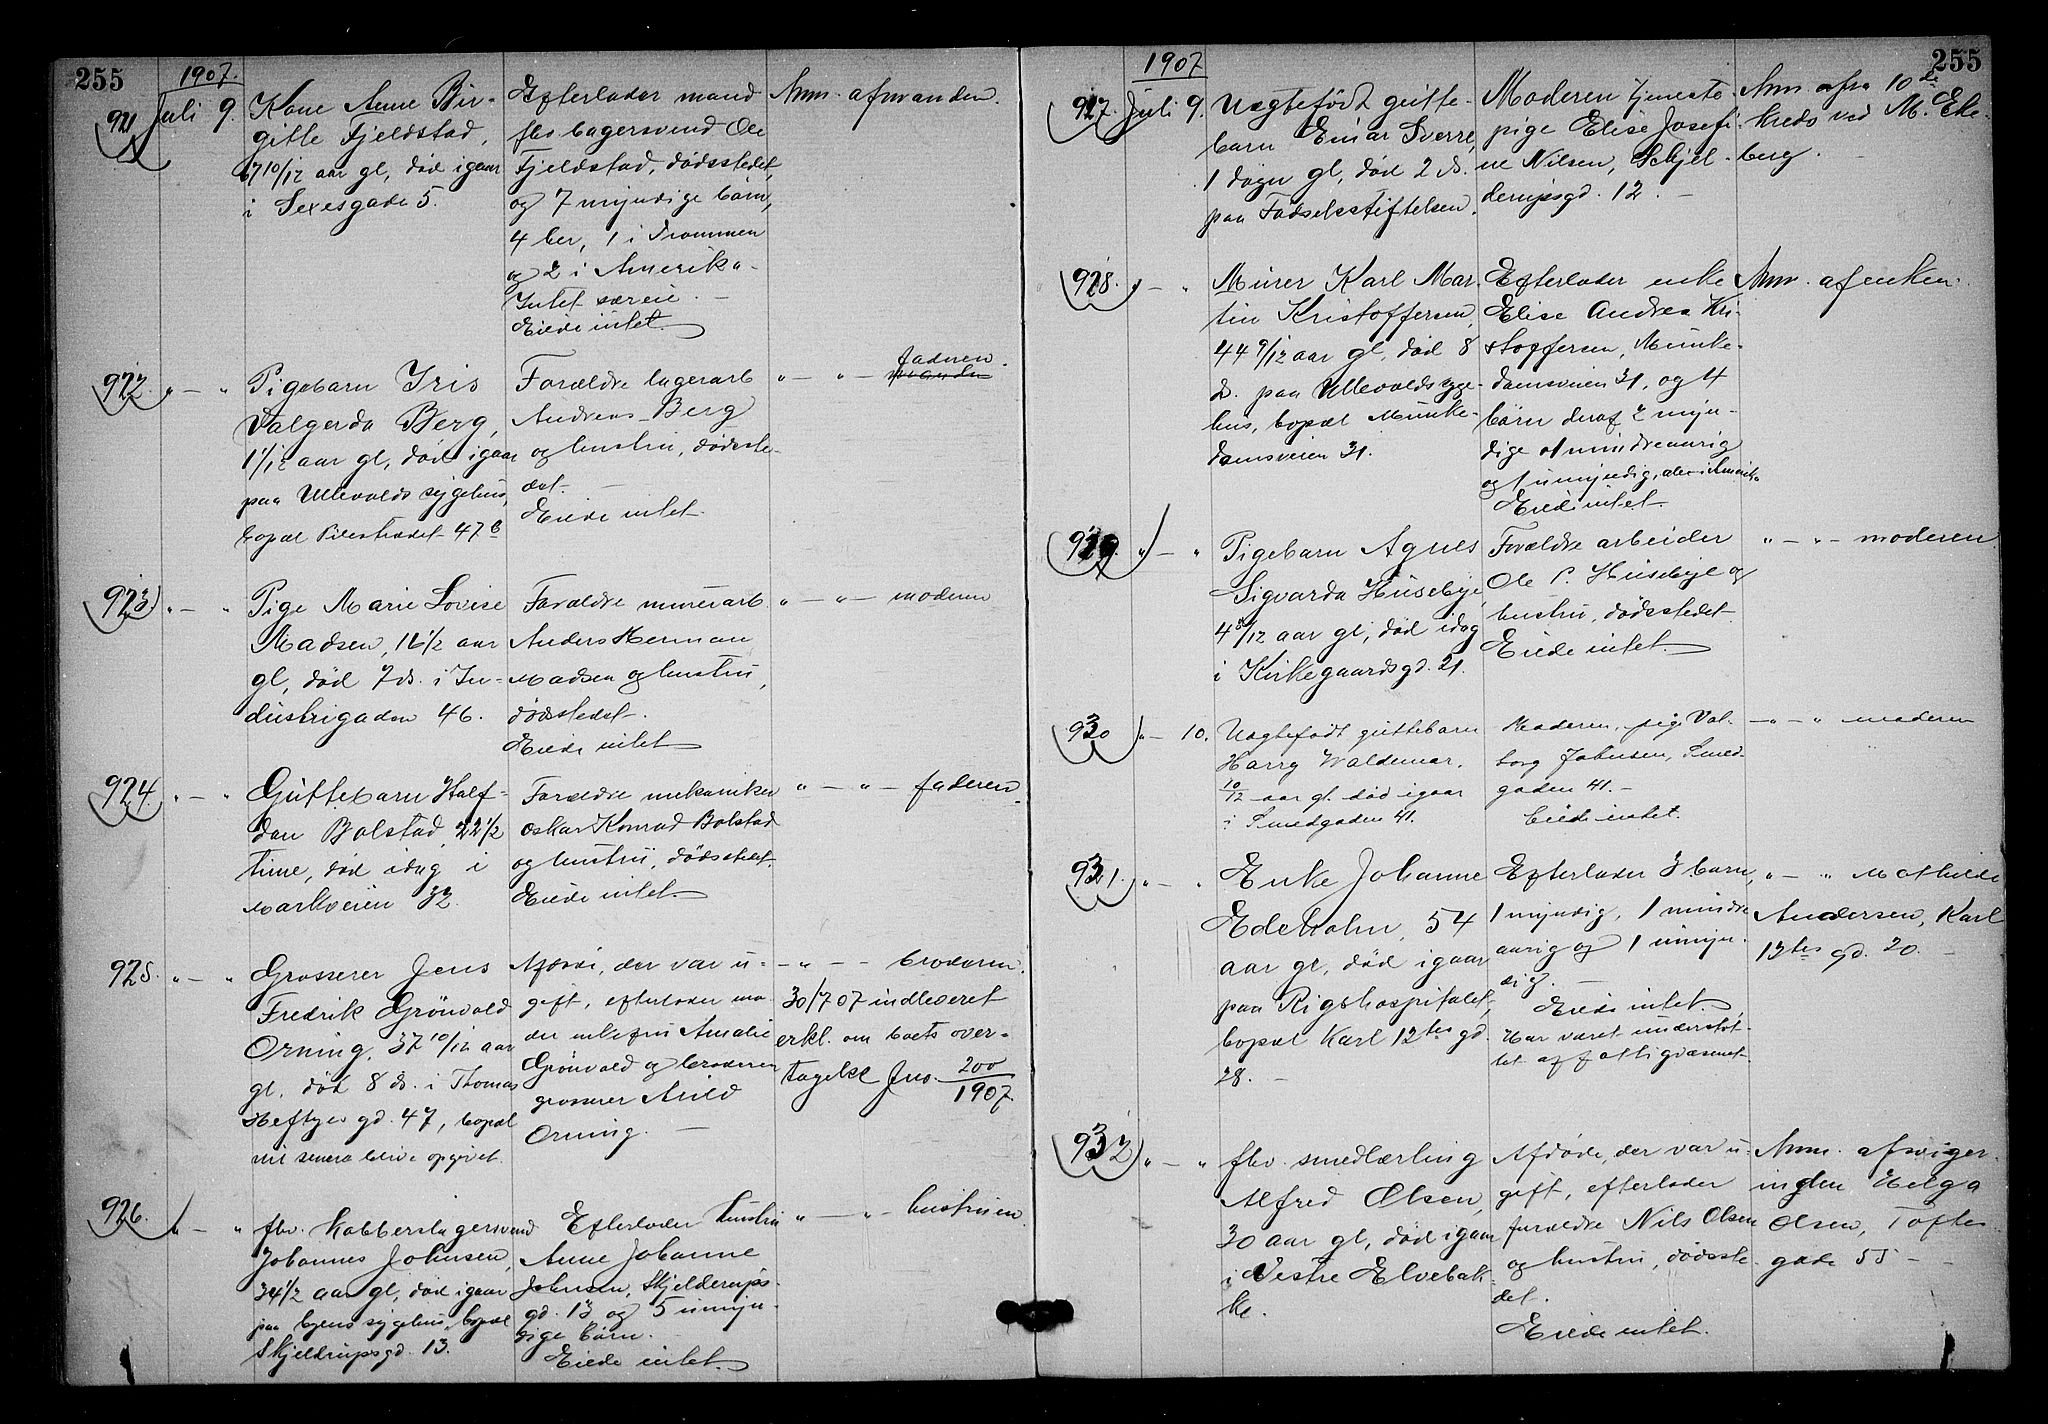 255
1907.
921
Juli 9.
Kone Anne Bir-
gitte Fjeldstad,
67 10/12 aar gl, død igaar
i Sexesgade 5.
Efterlader mand
fhv bagersvend Ole
Fjeldstad, dødsstedet,
og 7 myndige barn,
4 her, 1 i Drammen
og 2 i Amerika.
Intet særeie. —
Eiede intet.
Anm. af manden.
922. " — "
Pigebarn Iris
Valgerda Berg,
1 1/12 aar gl, død igaar
paa Ullevolds sygehus,
bopæl Pilestrædet 47 b
Forældre lagerarb
Andreas Berg
og hustru, dødsste-
det. —
Eiede intet.
" — " — faderen.
manden
923. " — "
Pige Marie Lovise
Madsen, 16 1/2 aar
gl, død 7 ds. i In-
dustrigaden 46.
Forældre murerarb.
Anders Herman
Madsen og hustru,
dødsstedet.
Eiede intet
" — " — moderen
924. " — "
Guttebarn Half-
dan Bolstad, 22 1/2
time, død idag i
Markveien 32.
Forældre mekaniker
Oskar Konrad Bolstad
og hustru, dødsstedet.
Eiede intet.
" — " — faderen.
925. " — "
Grosserer Jens
Fredrik Grönvold
Orning, 37 10/12 aar
gl, død 8 ds. i Thomas
Heftyes gd. 47, bopæl
vil senere blive opgivet.
Afdøde, der var u-
gift, efterlader mo-
der enkefru Amalie
Grönvold og broderen
grosserer Arild
Orning. —
— " — — broderen.
30/7 07 indleveret
erkl. om boets over-
tagelse Jno. 200/1907.
926. " — "
fhv. Kobberslagersvend
Johannes Johnsen,
34 1/2 aar gl, død igaar
paa byens sygehus, bopæl
Skjeldrupsgd. 13.
Efterlader hustru
Anne Johanne
Johnsen, Skjelderups-
gd. 13 og 5 umyn-
dige børn. —
Eiede intet.
" — " — hustruen.
1907
255
927. Juli 9.
Uægtefödt gutte-
barn Einar Sverre,
1 døgn gl, død 2 ds.
paa Fødselsstiftelsen.
Moderen tjeneste-
pige Elise Josefi-
ne Nilsen, Skjel-
derupsgd. 12. —
Anm. fra 10de
kreds ved M. Eke-
berg.
928. " — "
Murer Karl Mar-
tin Kristoffersen,
44 9/12 aar gl, død 8
ds. paa Ullevolds syge-
hus, bopæl Munke-
damsveien 31.
Efterlader enke
Elise Andrea Kri-
stoffersen, Munke-
damsveien 31, og 4
børn deraf 2 myn-
dige 1 mindreaarig
og 1 umyndig,
Eiede intet.
Anm. af enken.
929. " — "
Pigebarn Agnes
Sigvarda Huseby,
4 8/12 aar gl, død idag
i Kirkegaardsgd. 21.
Forældre arbeider
Ole P. Huseby og
hustru, dødsstedet.
Eiede intet.
" — " — moderen
930 " — 10.
Uægtefødt guttebarn
Harry Waldemar,
10/12 aar gl. død igaar
i Smedgaden 41.
Moderen, pige Val-
borg Johnsen, Smed-
gaden 41. —
Eiede intet.
— " — " moderen
931. " — "
Enke Johanne
Edeholm, 54
aar gl, død igaar
paa Rigshospitalet,
bopæl Karl 12tes gd.
28. —
Efterlader 3 barn,
1 myndig, 1 mindre-
aarig og 1 umyn-
dig. —
Eiede intet.
Har været understöt-
tet af fattigvæsenet.
" — " Mathilde
Andersen, Karl
12tes gd. 20. —
932 " — "
fhv. smedlærling
Alfred Olsen,
30 aar gl, død igaar
i Vestre Elvebak-
ke.
Afdøde, der var u-
gift, efterlader
forældre Nils Olsen
og hustru, dødsste-
det.
Eiede intet.
Anm. af sviger-
inden Helga
Olsen, Toftes-
gade 55 —